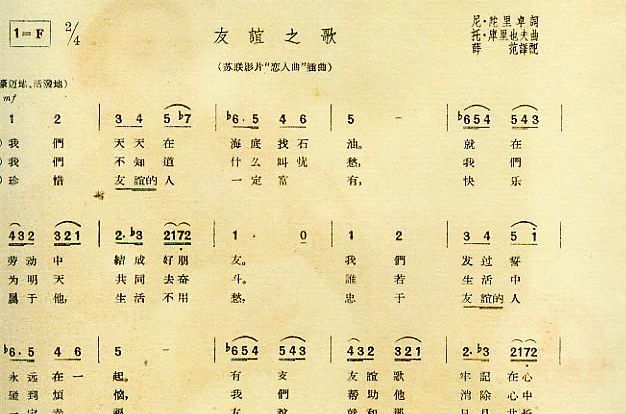 1=F 2/4
友誼之歌
尼·陀里卓詞
托·庫里也夫曲
薛范譯配
(苏联影片“恋人曲”插曲)
豪迈地、活潑地)
mf
1 2 | 3 4 5 ♭7 | ♭6· 5 4 6 | 5 - | ♭654 543 |
我們 天天在 海底找石 油。 就在
我們 不知道 什么叫忧 愁, 我們
珍惜 友誼的人 一定富 有, 快乐
432 321 | 2·♭3 2172 | 1· 0 | 1 2 | 3 4 5 i |
劳动中 結成好朋 友。 我們 发过誓
为明天 共同去奋 斗。 誰若 生活中
属于他, 生活不用 愁, 忠于 友誼的人
♭6·5 4 6 | 5 - | ♭654 543 | ♭432 321 | 2·♭3 2172 |
永远在一 起。 有支 友誼歌 牢記在心
碰到煩 惱, 我們 帮助他 消除心中